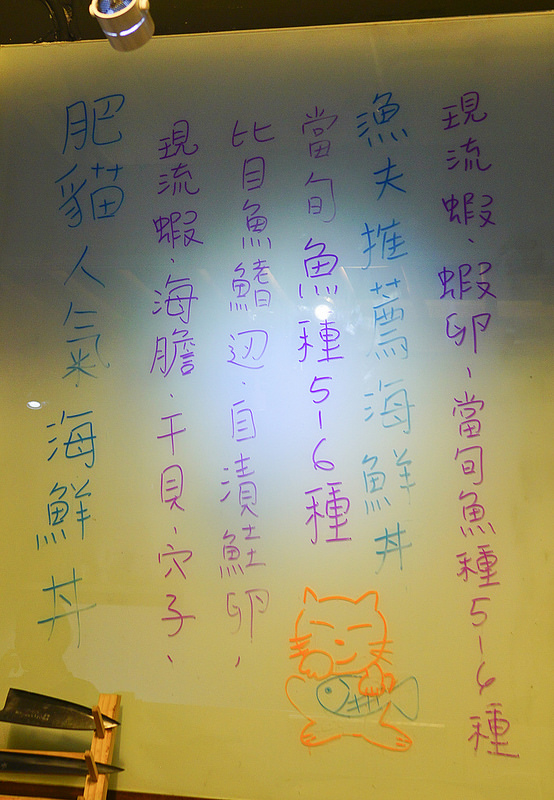 肥貓人氣海鮮丼
現流蝦、海膽、干貝、穴子、
比目魚鰭辺、自漬鮭卵,
當旬魚種5-6種
漁夫推薦海鮮丼
現流蝦、蝦卵、當旬魚種5-6種